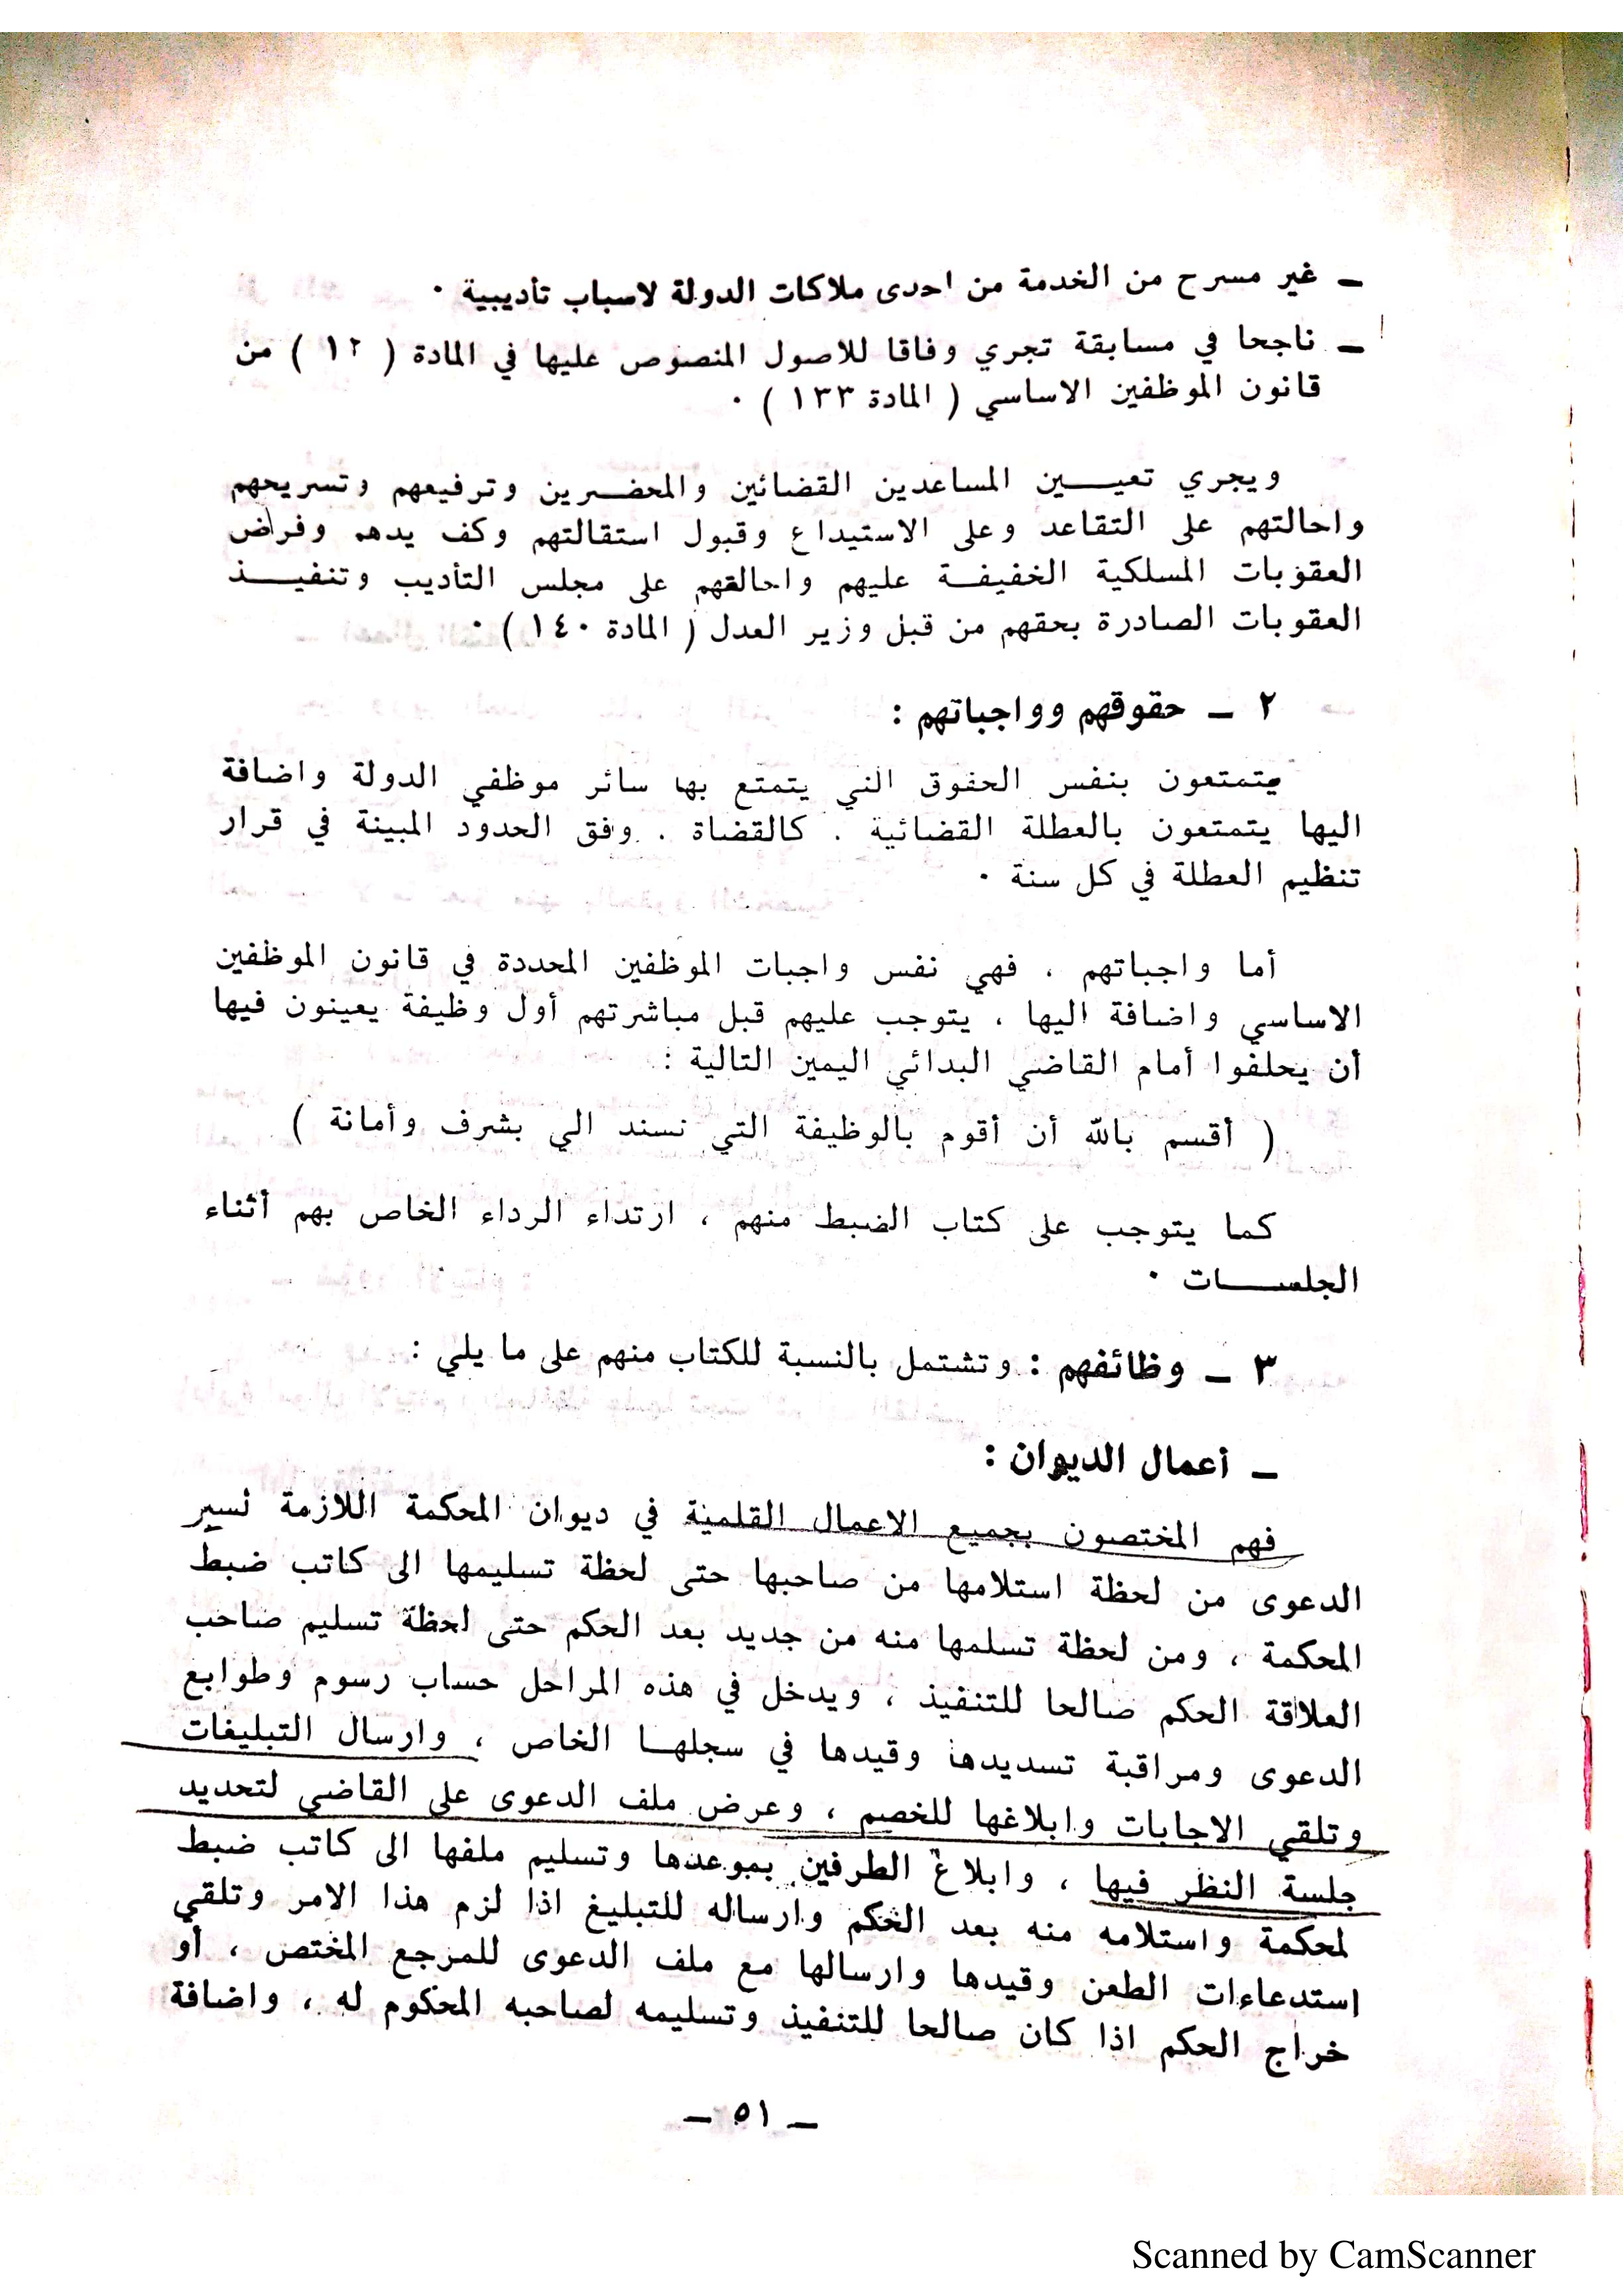 ـ غير مسرح من الخدمة من احدى ملاكات الدولة لاسباب تأديبية ٠
ـ ناجحا في مسابقة تجري وفاقا للاصول المنصوص عليها في المادة ( ١٢ ) من
قانون الموظفين الاساسي ( المادة ١٣٣ ) ٠
ويجري تعيـــين المساعدين القضائين والمحضـرين وترفيعهم وتسريحهم
واحالتهم على التقاعد وعلى الاستيداع وقبول استقالتهم وكف يدهم وفراض
العقوبات المسلكية الخفيفـة عليهم واحالقهم على مجلس التأديب وتنفيــــذ
العقوبات الصادرة بحقهم من قبل وزير العدل ( المادة ١٤٠ ) ٠
٢ ـ حقوقهم وواجباتهم :
يتمتعون بنفس الحقوق التي يتمتع بها سائر موظفي الدولة واضافة
اليها يتمتعون بالعطلة القضائية . كالقضاة . وفق الحدود المبينة في قرار
تنظيم العطلة في كل سنة ٠
أما واجباتهم ، فهي نفس واجبات الموظفين المحددة في قانون الموظفين
الاساسي واضافة اليها ، يتوجب عليهم قبل مباشرتهم أول وظيفة يعينون فيها
أن يحلفوا أمام القاضي البدائي اليمين التالية :
( أقسم بالله أن أقوم بالوظيفة التي نسند الي بشرف وأمانة )
كما يتوجب على كتاب الضبط منهم ، ارتداء الرداء الخاص بهم أثناء
الجلســـات ٠
٣ ـ وظائفهم : وتشتمل بالنسبة للكتاب منهم على ما يلي :
ـ أعمال الديوان :
فهم المختصون بجميع الاعمال القلمية في ديوان المحكمة اللازمة لسير
الدعوى من لحظة استلامها من صاحبها حتى لحظة تسليمها الى كاتب ضبط
المحكمة ، ومن لحظة تسلمها منه من جديد بعد الحكم حتى لحظة تسليم صاحب
العلاقة الحكم صالحا للتنفيذ ، ويدخل في هذه المراحل حساب رسوم وطوابع
الدعوى ومراقبة تسديدها وقيدها في سجلهـا الخاص ، وارسال التبليغات
وتلقي الاجابات وابلاغها للخصم ، وعرض ملف الدعوى على القاضي لتحديد
جلسة النظر فيها ، وابلاغ الطرفين بموعدها وتسليم ملفها الى كاتب ضبط
لمحكمة واستلامه منه بعد الحكم وارساله للتبليغ اذا لزم هذا الامر وتلقي
إستدعاءات الطعن وقيدها وارسالها مع ملف الدعوى للمرجع المختص ، أو
خراج الحكم اذا كان صالحا للتنفيذ وتسليمه لصاحبه المحكوم له ، واضافة
ـ ٥١ ـ
Scanned by CamScanner